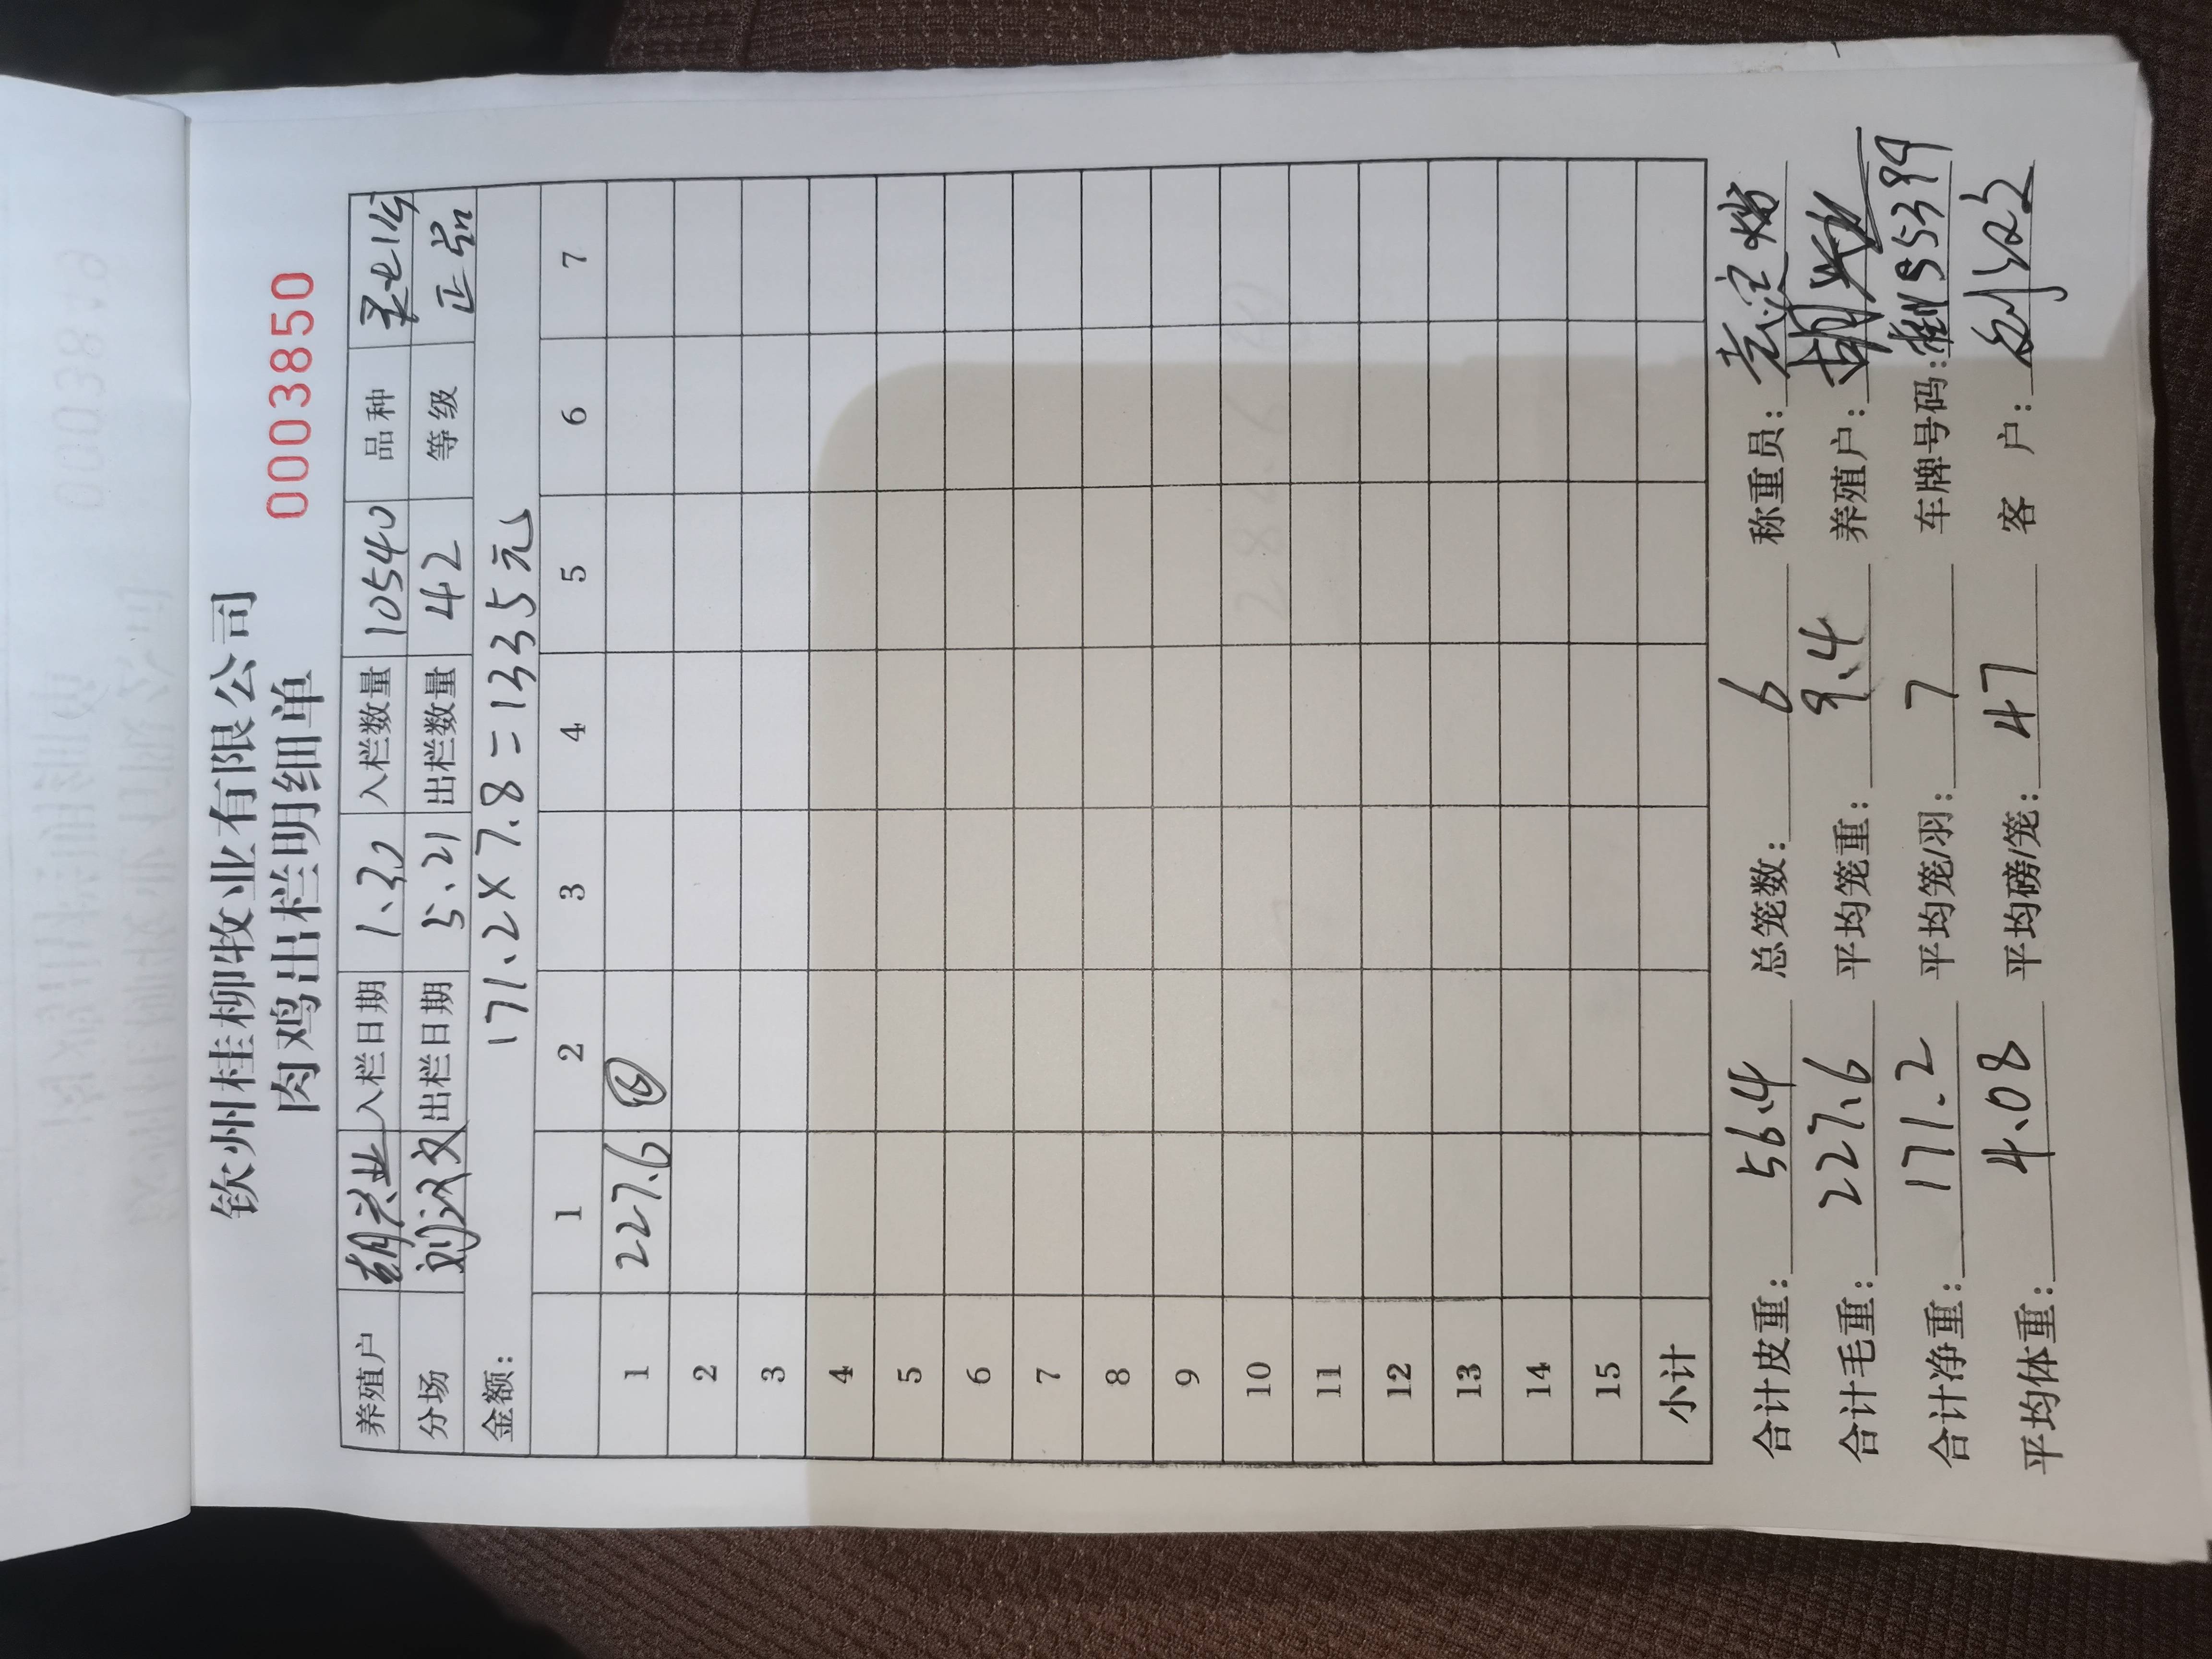 钦州桂柳牧业有限公司
肉鸡出栏明细单
0003850
养殖户 胡兴业 入栏日期 1.30 入栏数量 10540 品种
分场 刘汉文 出栏日期 5.21 出栏数量 42 等级 正品
金额： 171.2×7.8=1335元
1 2 3 4 5 6 7
1 227.6 ⑥
2
3
4
5
6
7
8
9
10
11
12
13
14
15
小计
合计皮重： 56.4 总笼数： 6 称重员：
合计毛重： 227.6 平均笼重： 9.4 养殖户： 胡兴业
合计净重： 171.2 平均笼/羽： 7 车牌号码：
平均体重： 4.08 平均磅/笼： 47 客 户：